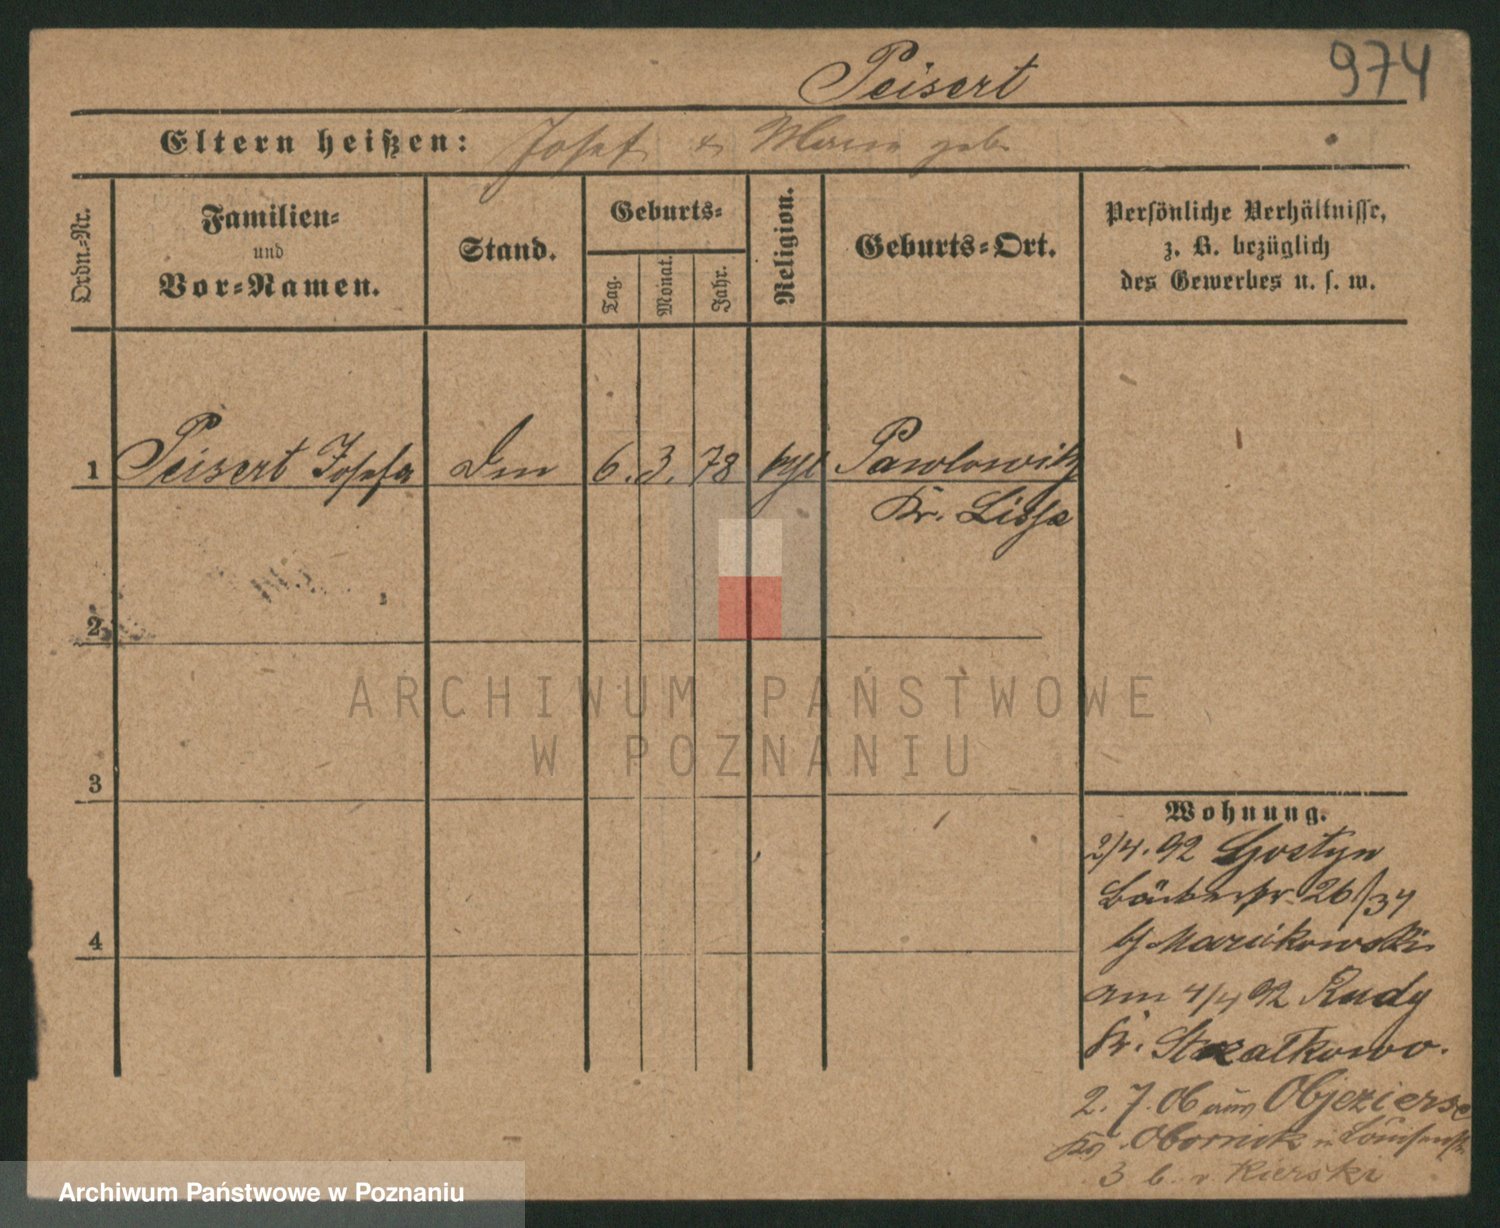 Peisert
974
Eltern heißen: Josef & Maria geb.
Ordn.-Nr.
Familien-
und
Vor-Namen.
Stand.
Geburts-
Tag.
Monat.
Jahr.
Religion.
Geburts-Ort.
Persönliche Verhältnisse,
z. B. bezüglich
des Gewerbes u. s. w.
1 Peisert Josefa 6. 3. 78 Pawlowitz
Kr. Lissa
2
3
4
Wohnung.
2/4. 92 Gostyn
26/34
Marcikowski
am 4/4 92 Rudy
Kr. Strzalkowo.
2. 7. 06 aus Objezierze
Obornick in Louisenstr.
3 b. v. Kierski
ARCHIWUM PAŃSTWOWE
W POZNANIU
Archiwum Państwowe w Poznaniu